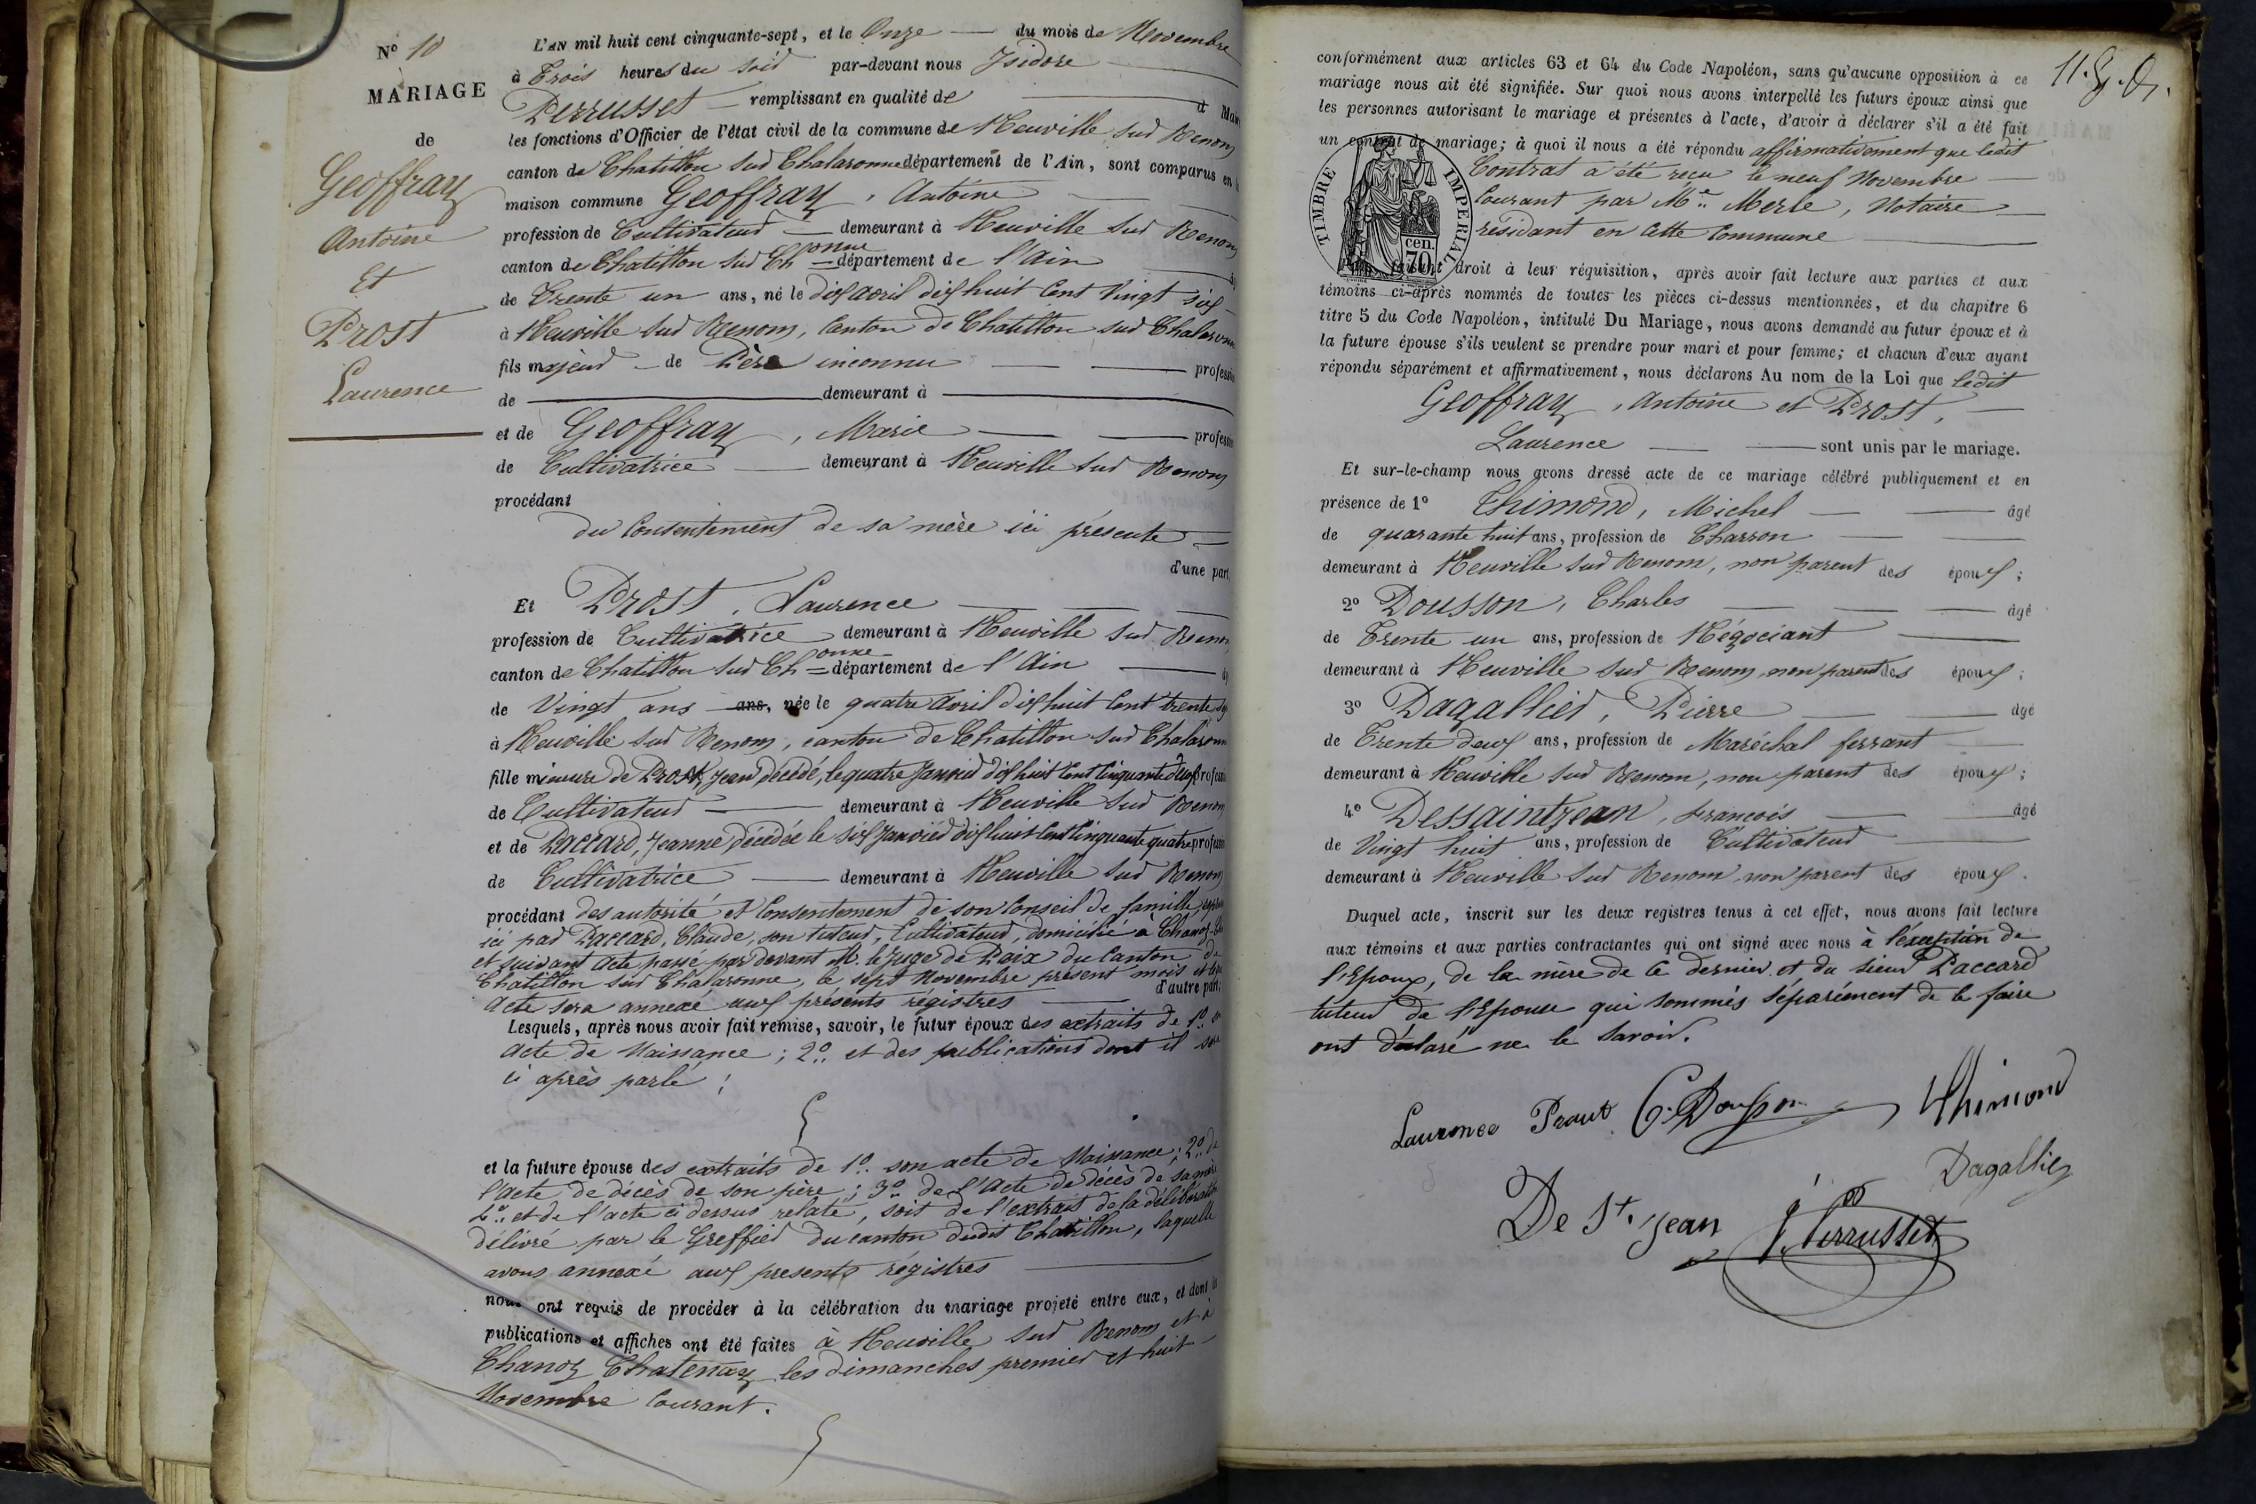 N° 10
MARIAGE
de
Geoffray
Antoine
Et
Prost
Laurence
L'AN mil huit cent cinquante-sept, et le Onze du mois de Novembre
à Trois heures du soir par-devant nous Isidore
Perrusset remplissant en qualité de
les fonctions d'Officier de l'état civil de la commune de Neuville sur Renom
canton de Chatillon sur Chalaronne département de l'Ain, sont comparus en
maison commune Geoffray, Antoine
profession de Cultivateur demeurant à Neuville sur Renom
canton de Chatillon sur Chonne département de l'Ain
de Trente un ans, né le dix avril dix huit Cent Vingt six
à Neuville sur Renom, Canton de Chatillon sur Chalaronne
fils majeur de Père inconnu profession
de demeurant à
et de Geoffray, Marie profession
de Cultivatrice demeurant à Neuville sur Renom
procédant
du Consentement de sa mère ici présente
d'une part,
Et Prost, Laurence
profession de Cultivatrice demeurant à Neuville sur Renom
canton de Chatillon sur Chonne département de l'Ain
de Vingt ans ans, née le quatre avril dix huit Cent trente
à Neuville sur Renom, canton de Chatillon sur Chalaronne
fille mineure de Prost, Jean décédé, le quatre Janvier dix huit Cent Cinquante deux profession
de Cultivateur demeurant à Neuville sur Renom
et de Paccard, Jeanne décédée le six Janvier dix huit Cent Cinquante quatre profession
de Cultivatrice demeurant à Neuville sur Renom
procédant des autorité et Consentement de son Conseil de famille,
ici par Paccard, Claude, son tuteur, Cultivateur, domicilié à Chanoz
et suivant acte passé par devant M. le Juge de Paix du Canton de
Chatillon sur Chalaronne, le sept Novembre présent mois
d'autre part;
acte sera annexé aux présents régistres
Lesquels, après nous avoir fait remise, savoir, le futur époux des extraits de 1°. son
acte de Naissance; 2°. et des publications dont il sera
ci après parlé;
et la future épouse des extraits de 1°. son acte de Naissance; 2°. de
l'acte de décès de son père; 3°. de l'acte de décès de sa mère
et de l'acte ci dessus relaté, soit de l'extrait de la délibération
délivré par le Greffier du canton dudit Chatillon, laquelle
avons annexé aux presents régistres
nous ont requis de procéder à la célébration du mariage projeté entre eux, et dont les
publications et affiches ont été faites à Neuville sur Renom et à
Chanoz Chatenay les dimanches premier et huit
Novembre Courant.
conformément aux articles 63 et 64 du Code Napoléon, sans qu'aucune opposition à ce
mariage nous ait été signifiée. Sur quoi nous avons interpellé les futurs époux ainsi que
les personnes autorisant le mariage et présentes à l'acte, d'avoir à déclarer s'il a été fait
un contrat de mariage; à quoi il nous a été répondu affirmativement que ledit
Contrat a été reçu le neuf Novembre
Courant par Me. Merle, Notaire
résidant en Cette Commune
TIMBRE IMPERIAL
cen.
70
faisant droit à leur réquisition, après avoir fait lecture aux parties et aux
témoins ci-après nommés de toutes les pièces ci-dessus mentionnées, et du chapitre 6
titre 5 du Code Napoléon, intitulé Du Mariage, nous avons demandé au futur époux et à
la future épouse s'ils veulent se prendre pour mari et pour femme; et chacun d'eux ayant
répondu séparément et affirmativement, nous déclarons Au nom de la Loi que ledit
Geoffray, Antoine et Prost,
Laurence sont unis par le mariage.
Et sur-le-champ nous avons dressé acte de ce mariage célébré publiquement et en
présence de 1° Thimond, Michel âgé
de quarante huit ans, profession de Charron
demeurant à Neuville sur Renom, non parent des époux;
2° Dousson, Charles âgé
de Trente un ans, profession de Négociant
demeurant à Neuville sur Renom, non parent des époux;
3° Dagallier, Pierre âgé
de Trente deux ans, profession de Maréchal ferrant
demeurant à Neuville sur Renom, non parent des époux;
4° Dessaintjean, François âgé
de Vingt huit ans, profession de Cultivateur
demeurant à Neuville sur Renom, non parent des époux.
Duquel acte, inscrit sur les deux registres tenus à cet effet, nous avons fait lecture
aux témoins et aux parties contractantes qui ont signé avec nous à l'exception de
l'Epoux, de la mère de ce dernier et du sieur Paccard
tuteur de l'Epouse qui sommés séparément de le faire
ont déclaré ne le Savoir.
Laurence Praut C. Dousson Thimond
Dagallier
De St. Jean J. Perrusset